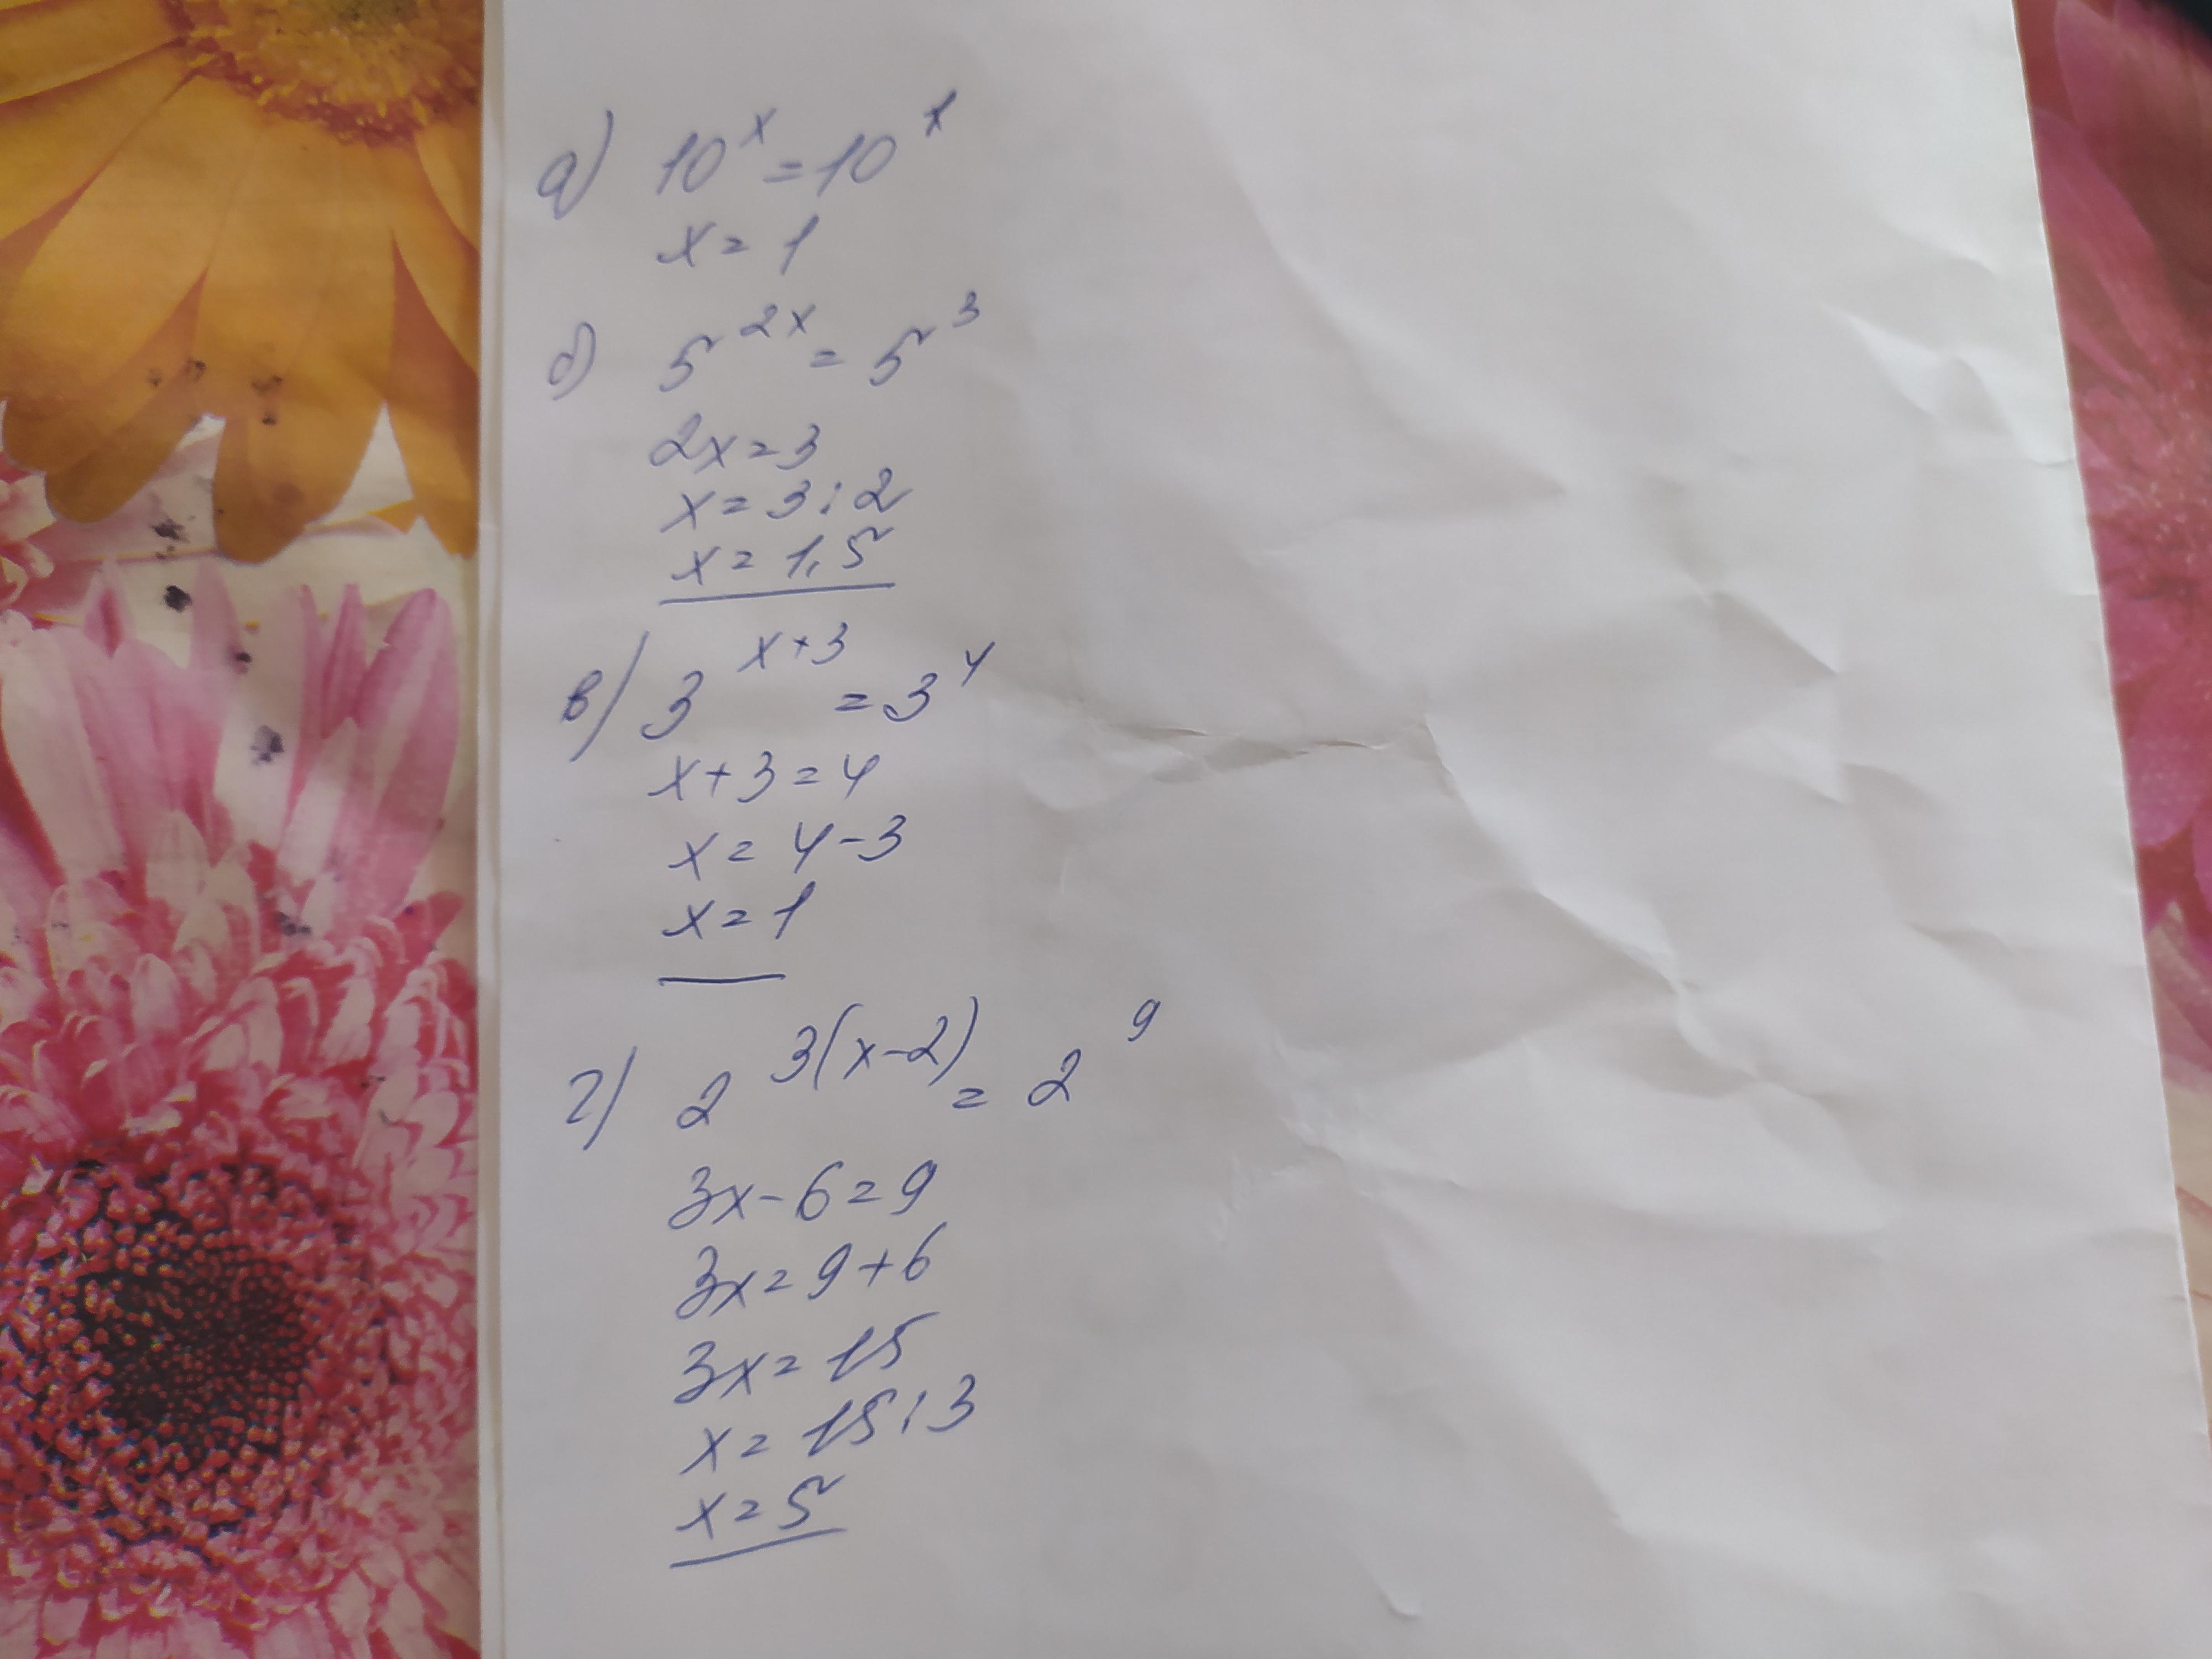 а) 10^x = 10^x
x = 1
б) 5^2x = 5^3
2x = 3
x = 3 : 2
x = 1,5
в) 3^x+3 = 3^4
x + 3 = 4
x = 4 - 3
x = 1
г) 2^3(x-2) = 2^9
3x - 6 = 9
3x = 9 + 6
3x = 15
x = 15 : 3
x = 5